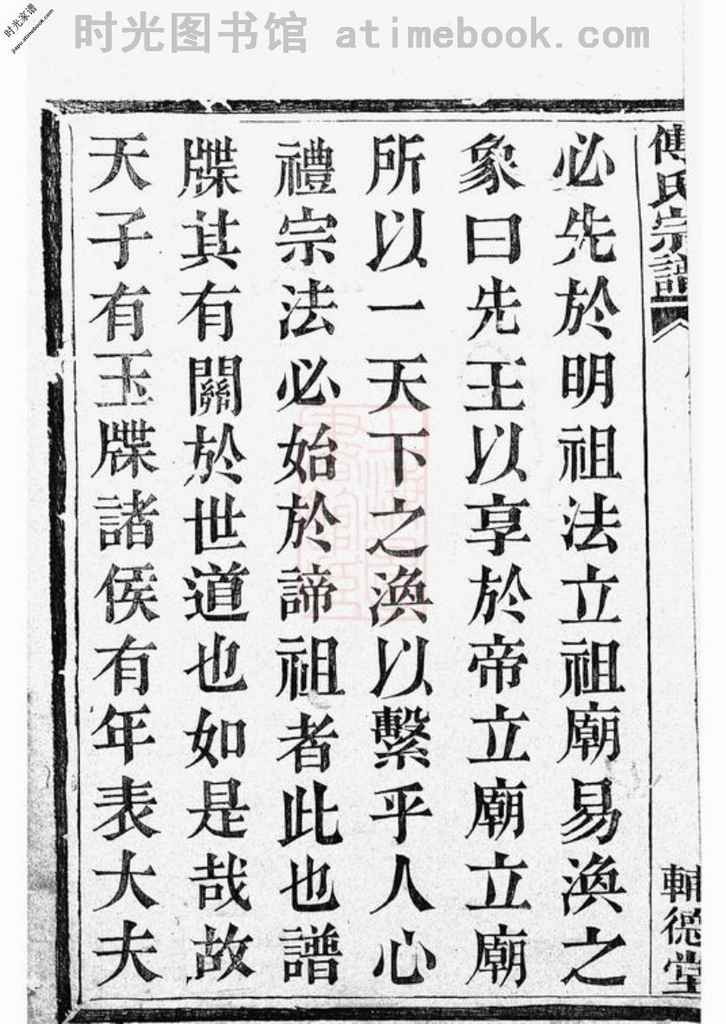 时光图书馆 atimebook.com
时光家谱
jiapu.atimebook.com
傅氏宗譜
輔德堂
必先於明祖法立祖廟易渙之
象曰先王以享於帝立廟立廟
所以一天下之渙以繫乎人心
禮宗法必始於諦祖者此也譜
牒其有關於世道也如是哉故
天子有玉牒諸侯有年表大夫